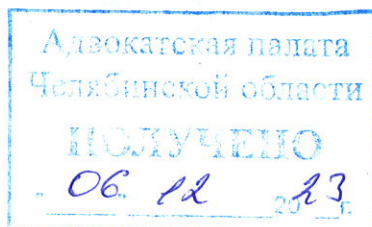 Адвокатская палата
Челябинской области
ПОЛУЧЕНО
"06" 12 2023 г.